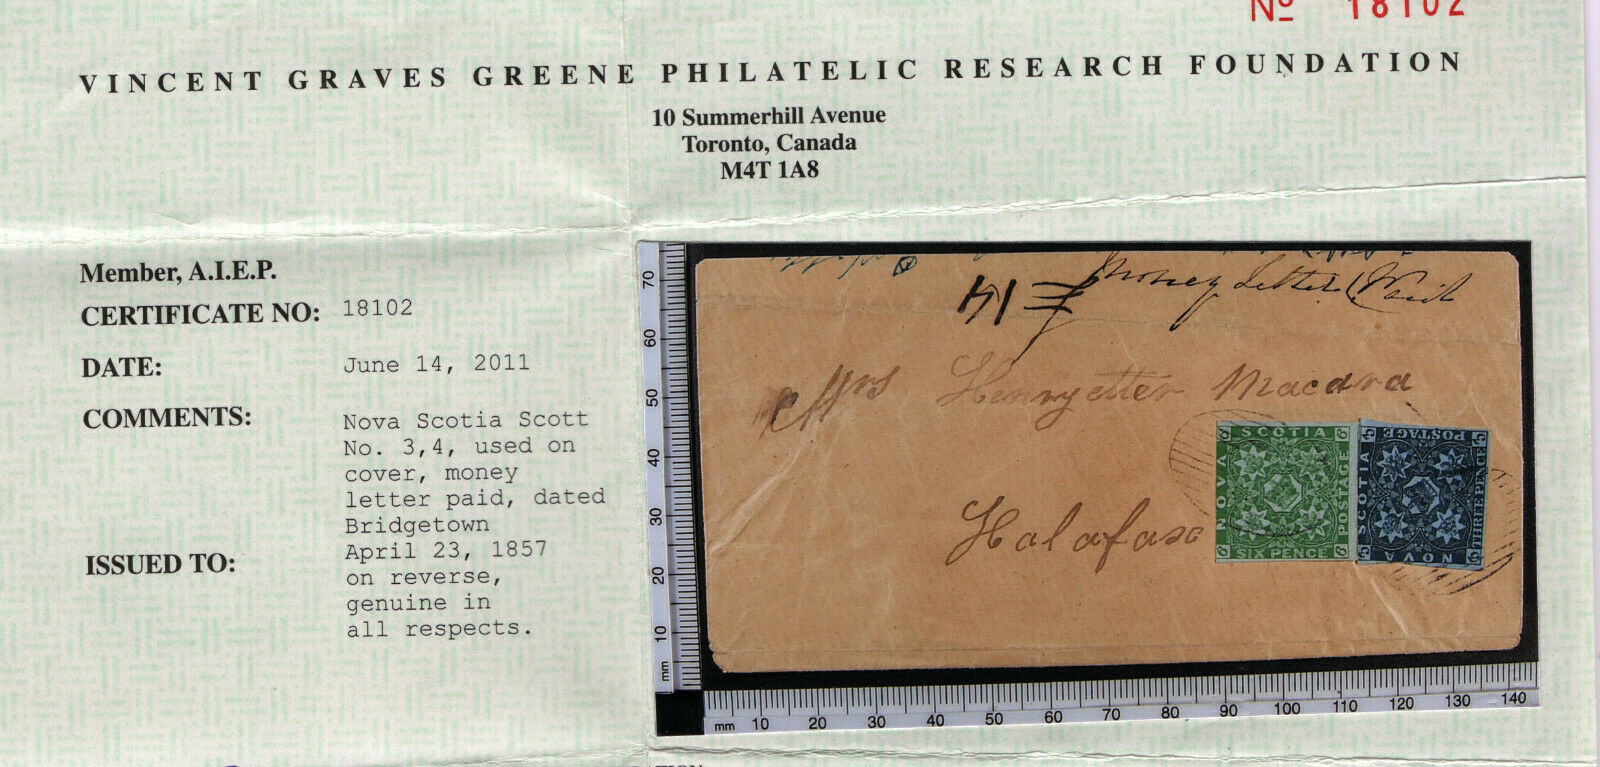 Nº 18102
VINCENT GRAVES GREENE PHILATELIC RESEARCH FOUNDATION
10 Summerhill Avenue
Toronto, Canada
M4T 1A8
Member, A.I.E.P.
CERTIFICATE NO: 18102
DATE: June 14, 2011
COMMENTS: Nova Scotia Scott
No. 3,4, used on
cover, money
letter paid, dated
Bridgetown
April 23, 1857
ISSUED TO:
on reverse,
genuine in
all respects.
70
60
50
40
30
20
10
mm
14
Money Letter Paid
Mrs Henryetter Macara
Halafax
6 SCOTIA 6
NOVA
POSTAGE
6 SIX PENCE 6
POSTAGE
SCOTIA
THREE PENCE
NOVA
mm 10 20 30 40 50 60 70 80 90 100 110 120 130 140